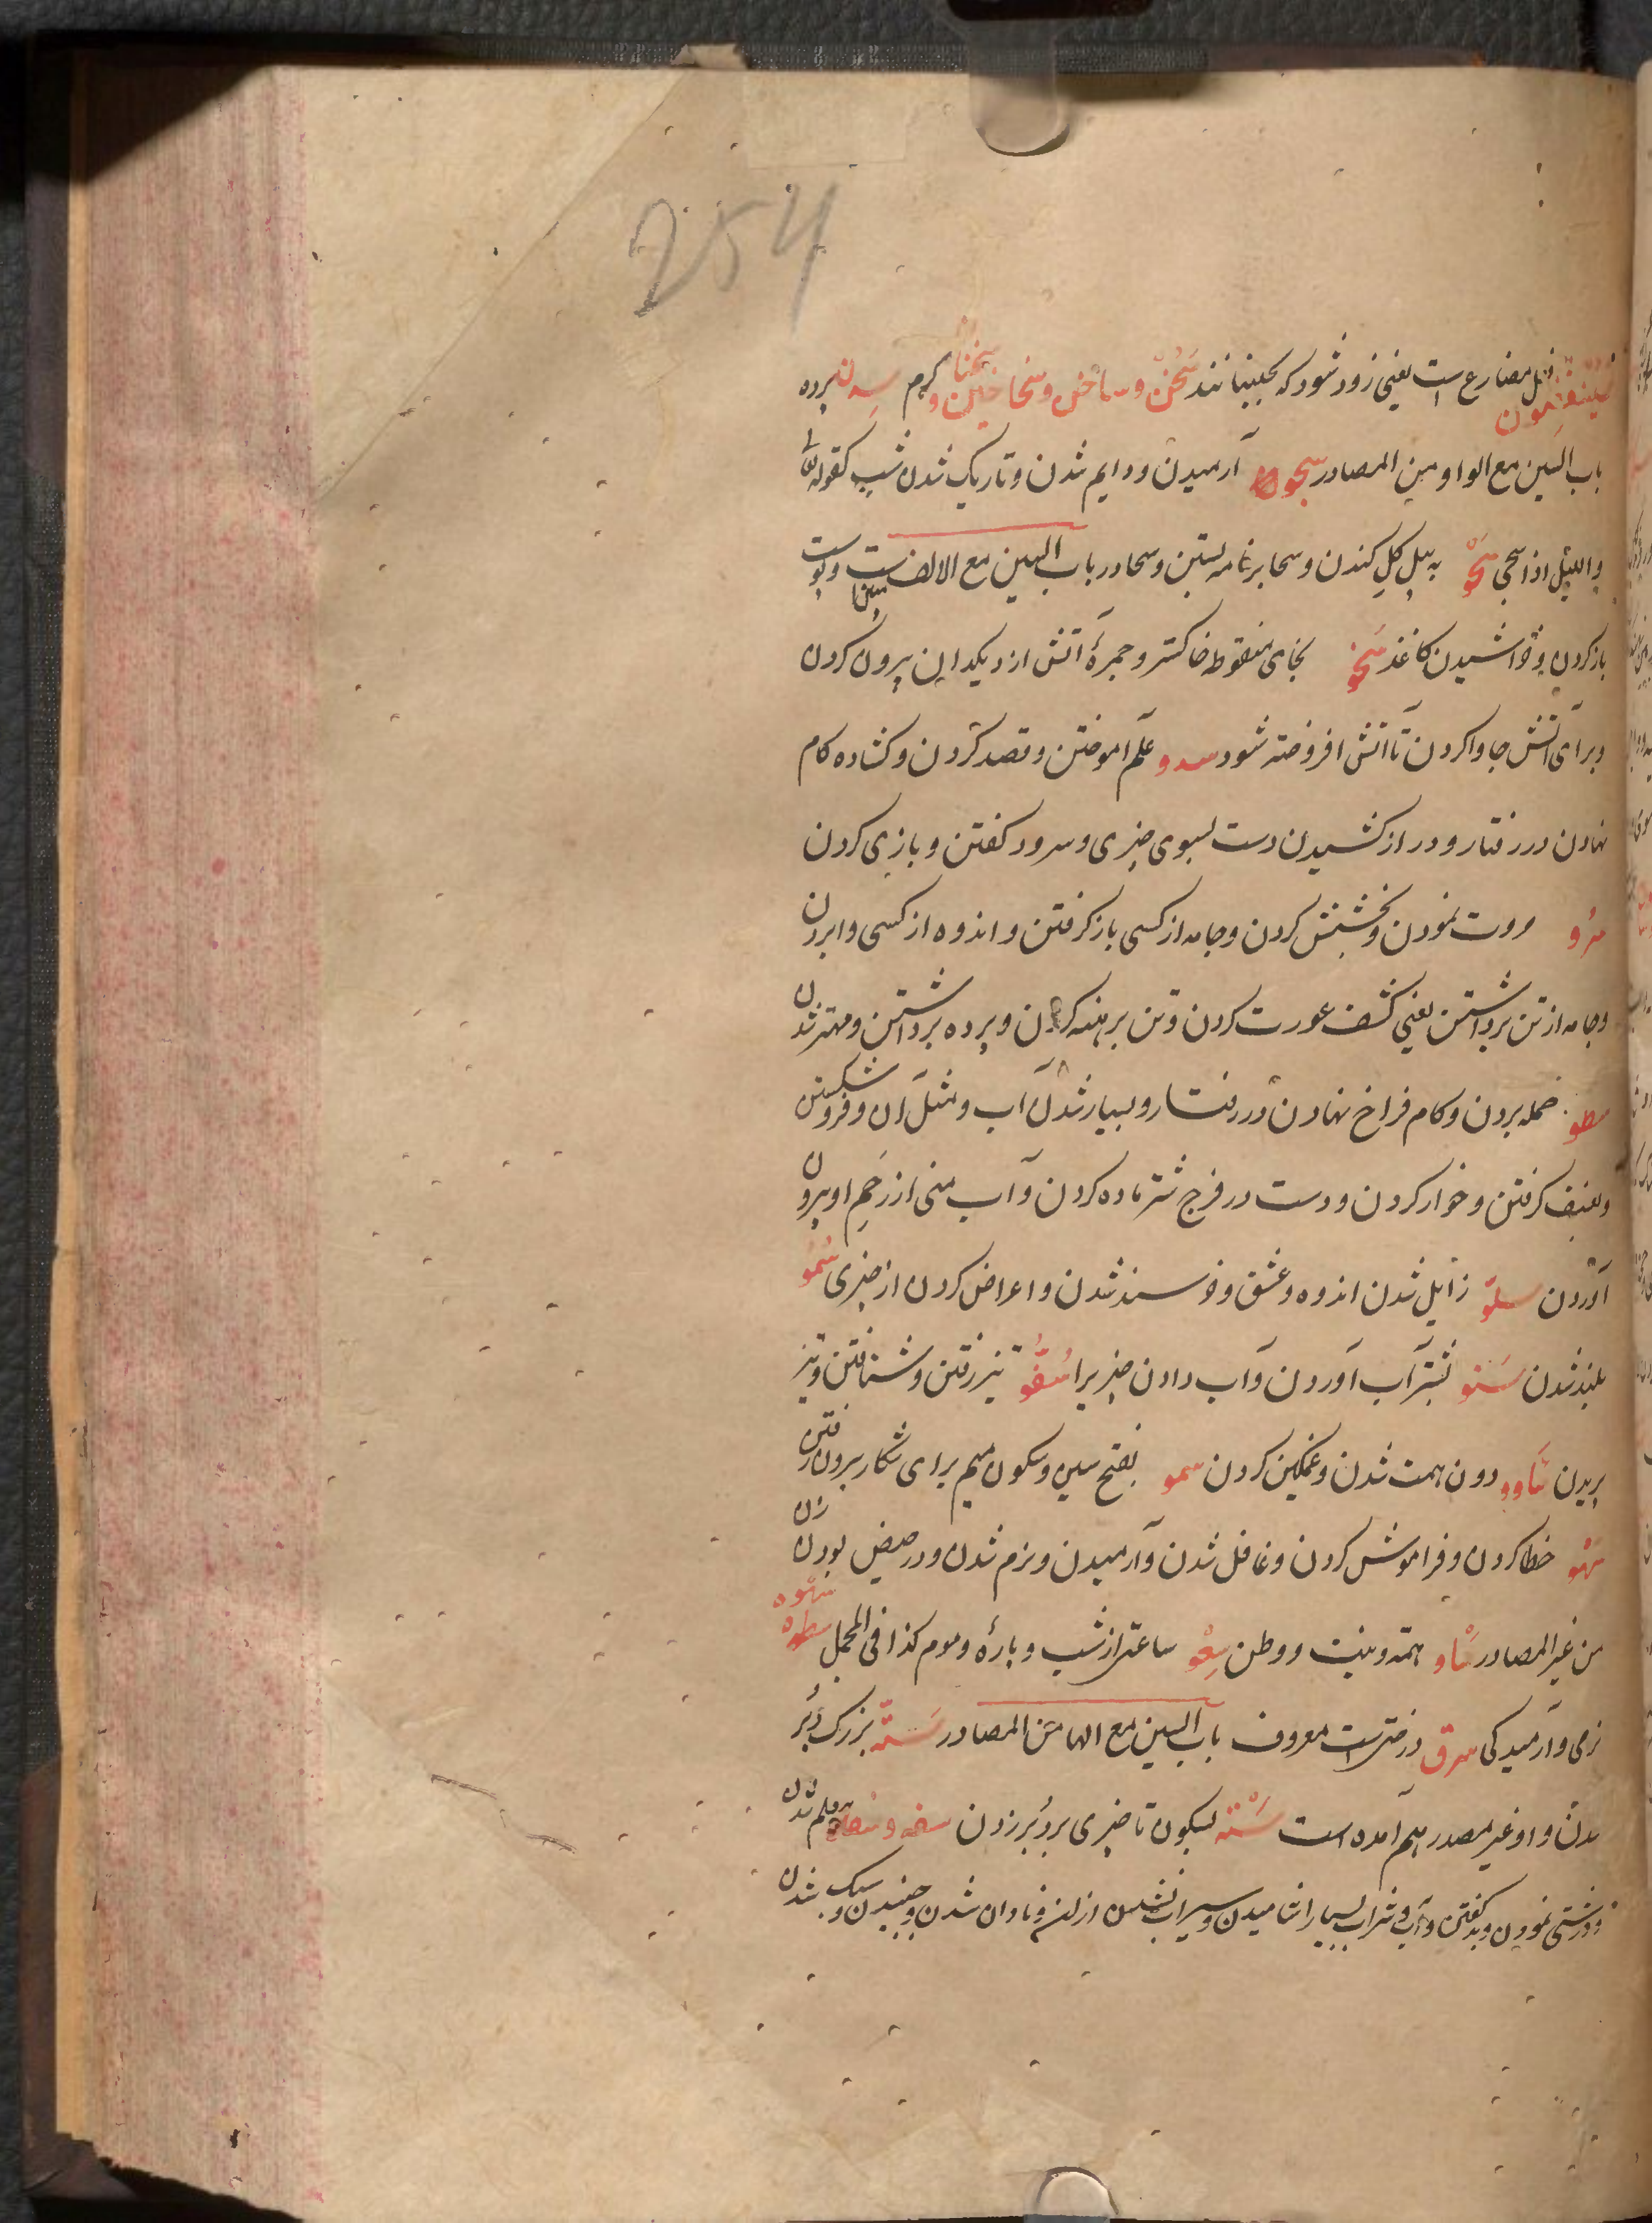 254
فسینغضون فعل مضارع است یعنی زود شود که بجنبانند سَخُنْ و ساخن و سخاخین و سخنا گرم سدن پرده
باب السین مع الواو من المصادر سجو آرمیدن و دایم شدن و تاریک شدن شب کقوله تع
واللیل اذا سجی سَحْو به بیل کل کندن و سحا بر نامه بستن و سحا در باب السین مع الالف مبین است و پوست
باز کردن و خراشیدن کاغذ سَخْو بخای منقوطه خاکستر و جمرهٔ آتش از دیکدان بیرون کردن
و برای آتش جا وا کردن تا آتش افروخته شود سدو علم آموختن و قصد کردن و کشاده کام
نهادن در رفتار و دراز کشیدن دست بسوی چیزی و سرود کفتن و بازی کردن
سرو مروت نمودن و بخشش کردن و جامه از کسی باز کرفتن و اندوه از کسی وا بردن
و جامه از تن برداشتن یعنی کشف عورت کردن و تن برهنه کردن و پرده برداشتن و مهتر شدن
سطو حمله بردن و کام فراخ نهادن در رفتار و بسیار شدن آب و مثل آن و فرو شکستن
و بعنف کرفتن و خوار کردن و دست در فرج شتر ماده کردن و آب منی از رحم او بیرون
آوردن سلوّ زایل شدن اندوه و عشق و خرسند شدن و اعراض کردن از چیزی سُمُو
بلند شدن سَنو بشتر آب آوردن و آب دادن چیزیرا سُفُو تیز رفتن و شتافتن و تیز
پریدن سَاوو دون همت شدن و غمکین کردن سمو بفتح سین و سکون میم برای شکار بیرون رفتن
سهو خطا کردن و فراموش کردن و غافل شدن و آرمیدن و نرم شدن و در حیض بودن زن
من غیر المصادر سَاو همة و نیت و وطن سِعْو ساعتی از شب و پارهٔ و موم کذا فی المجمل سطوه سهوه
نرمی و آرمیدکی سرو درختی است معروف باب السین مع الها من المصادر سَتَه بزرک دبر
شدن و او غیر مصدر هم آمده است سَتْه بسکون تا چیزی بر دبر زدن سفه و سفاه
و درشتی نمودن و بد کفتن و آب و شراب بسیار اشامیدن و سیراب نشدن از ان و نادان شدن و جنبیدن و سبک شدن